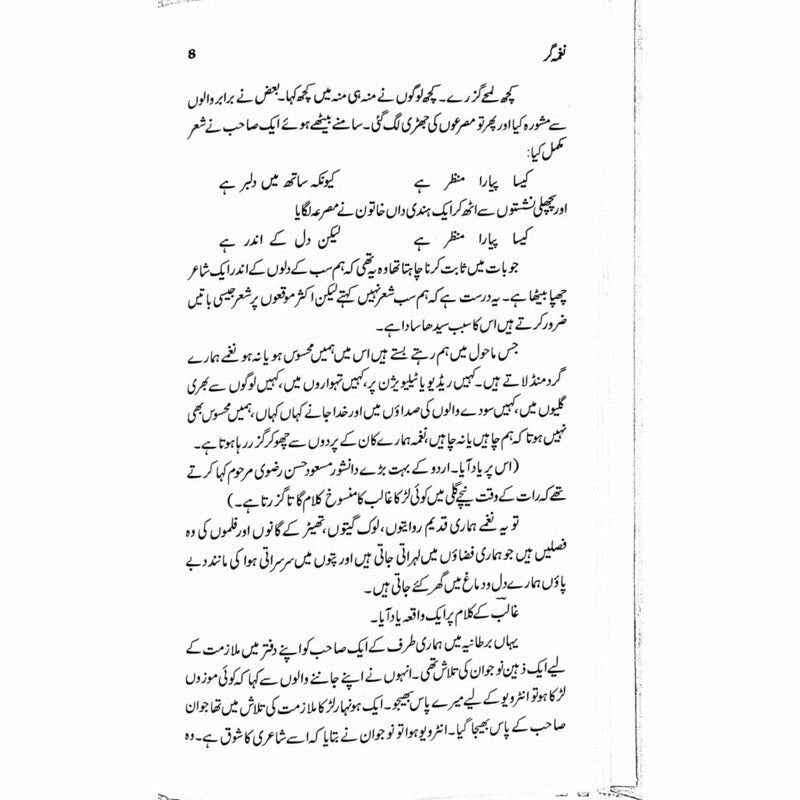 نغمہ گر 8
کچھ لمحے گزرے۔ کچھ لوگوں نے منہ ہی منہ میں کچھ کہا۔ بعض نے برابر والوں
سے مشورہ کیا اور پھر تو مصرعوں کی جھڑی لگ گئی۔ سامنے بیٹھے ہوئے ایک صاحب نے شعر
مکمل کیا:
کیسا پیارا منظر ہے کیونکہ ساتھ میں دلبر ہے
اور پچھلی نشستوں سے اٹھ کر ایک ہندی داں خاتون نے مصرعہ لگایا
کیسا پیارا منظر ہے لیکن دل کے اندر ہے
جو بات میں ثابت کرنا چاہتا تھا وہ یہ تھی کہ ہم سب کے دلوں کے اندر ایک شاعر
چھپا بیٹھا ہے۔ یہ درست ہے کہ ہم سب شعر نہیں کہتے لیکن اکثر موقعوں پر شعر جیسی باتیں
ضرور کرتے ہیں اس کا سبب سیدھا سادا ہے۔
جس ماحول میں ہم رہتے بستے ہیں اس میں ہمیں محسوس ہو یا نہ ہو نغمے ہمارے
گرد منڈلاتے ہیں۔ کہیں ریڈیو یا ٹیلیویژن پر، کہیں تہواروں میں، کہیں لوگوں سے بھری
گلیوں میں، کہیں سودے والوں کی صداؤں میں اور خدا جانے کہاں کہاں، ہمیں محسوس بھی
نہیں ہوتا کہ ہم چاہیں یا نہ چاہیں، نغمہ ہمارے کان کے پردوں سے چھو کر گزر رہا ہوتا ہے۔
(اس پر یاد آیا۔ اردو کے بہت بڑے دانشور مسعود حسن رضوی مرحوم کہا کرتے
تھے کہ رات کے وقت نیچے گلی میں کوئی لڑکا غالب کا منسوخ کلام گاتا گزرتا ہے۔)
تو یہ نغمے ہماری قدیم روایتوں، لوک گیتوں، تھیٹر کے گانوں اور فلموں کی وہ
فصلیں ہیں جو ہماری فضاؤں میں لہراتی جاتی ہیں اور پتوں میں سرسراتی ہوا کی مانند دبے
پاؤں ہمارے دل و دماغ میں گھر کئے جاتی ہیں۔
غالبؔ کے کلام پر ایک واقعہ یاد آیا۔
یہاں برطانیہ میں ہماری طرف کے ایک صاحب کو اپنے دفتر میں ملازمت کے
لیے ایک ذہین نوجوان کی تلاش تھی۔ انہوں نے اپنے جاننے والوں سے کہا کہ کوئی موزوں
لڑکا ہو تو انٹرویو کے لیے میرے پاس بھیجو۔ ایک ہونہار لڑکا ملازمت کی تلاش میں تھا جو ان
صاحب کے پاس بھیجا گیا۔ انٹرویو ہوا تو نوجوان نے بتایا کہ اسے شاعری کا شوق ہے۔ وہ